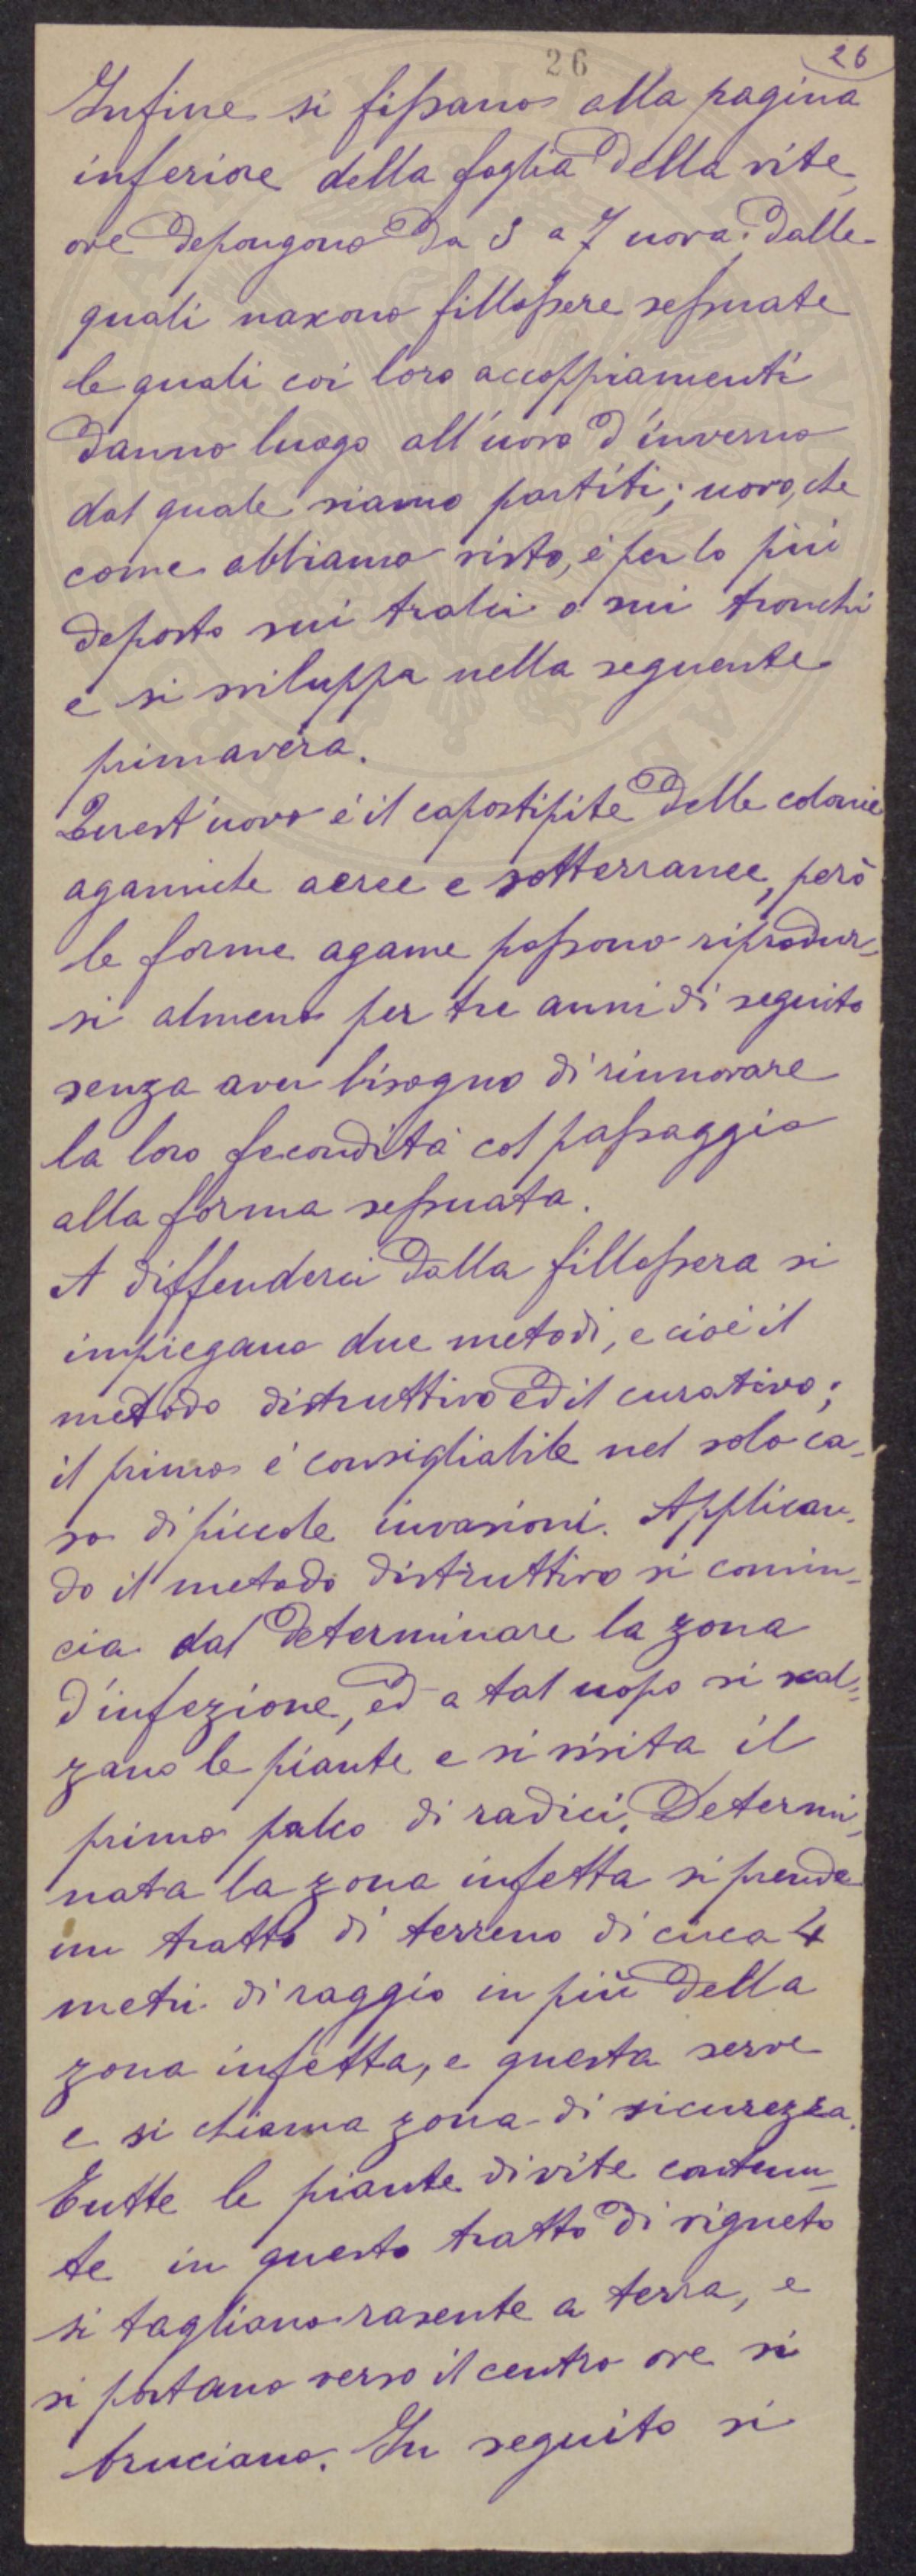 26
26
Infine si fissano alla pagina
inferiore della foglia della vite,
ove depongono da 3 a 7 uova dalle
quali nascono fillossere sessuate
le quali coi loro accoppiamenti
danno luogo all'uovo d'inverno
dal quale siamo partiti; uovo, che
come abbiamo visto, è per lo più
deposto sui tralci o sui tronchi
e si sviluppa nella seguente
primavera.
Quest'uovo è il capostipite delle colonie
agamiche aeree e sotterranee, però
le forme agame possono riprodur-
si almeno per tre anni di seguito
senza aver bisogno di rinnovare
la loro fecondità col passaggio
alla forma sessuata.
A diffenderci dalla fillossera si
impiegano due metodi, e cioè il
metodo distruttivo ed il curativo;
il primo è consigliabile nel solo ca-
so di piccole invasioni. Applican-
do il metodo distruttivo si comin-
cia dal determinare la zona
d'infezione, ed a tal uopo si scal=
zano le piante e si visita il
primo palco di radici. Determi-
nata la zona infetta si prende
un tratto di terreno di circa 4
metri di raggio in più della
zona infetta, e questa serve
e si chiama zona di sicurezza.
Tutte le piante di vite contenu-
te in questo tratto di vigneto
si tagliano rasente a terra, e
si portano verso il centro ove si
bruciano. In seguito si